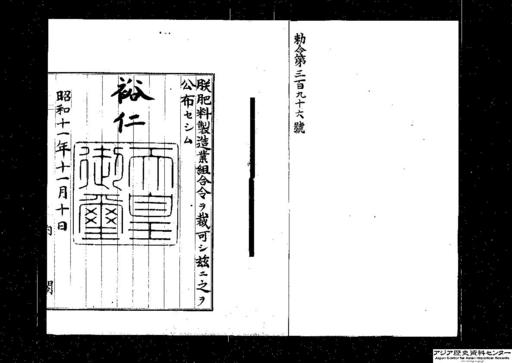 勅令第三百九十六號
朕肥料製造業組合令ヲ裁可シ茲ニ之ヲ
公布セシム
裕仁
天皇
御璽
昭和十一年十一月十日
内閣
アジア歴史資料センター
Japan Center for Asian Historical Records